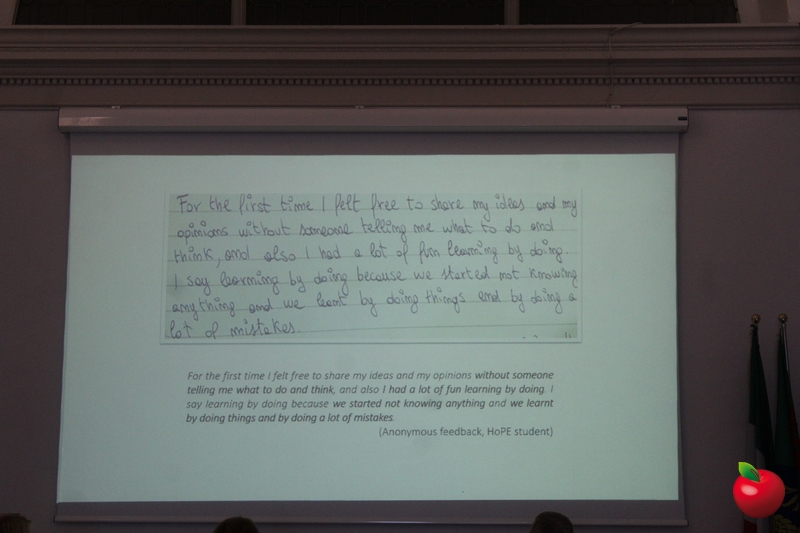 For the first time I felt free to share my ideas and my
opinions without someone telling me what to do and
think, and also I had a lot of fun learning by doing.
I say learning by doing because we started not knowing
anything and we learnt by doing things and by doing a
lot of mistakes.
For the first time I felt free to share my ideas and my opinions without someone
telling me what to do and think, and also I had a lot of fun learning by doing. I
say learning by doing because we started not knowing anything and we learnt
by doing things and by doing a lot of mistakes.
(Anonymous feedback, HoPE student)